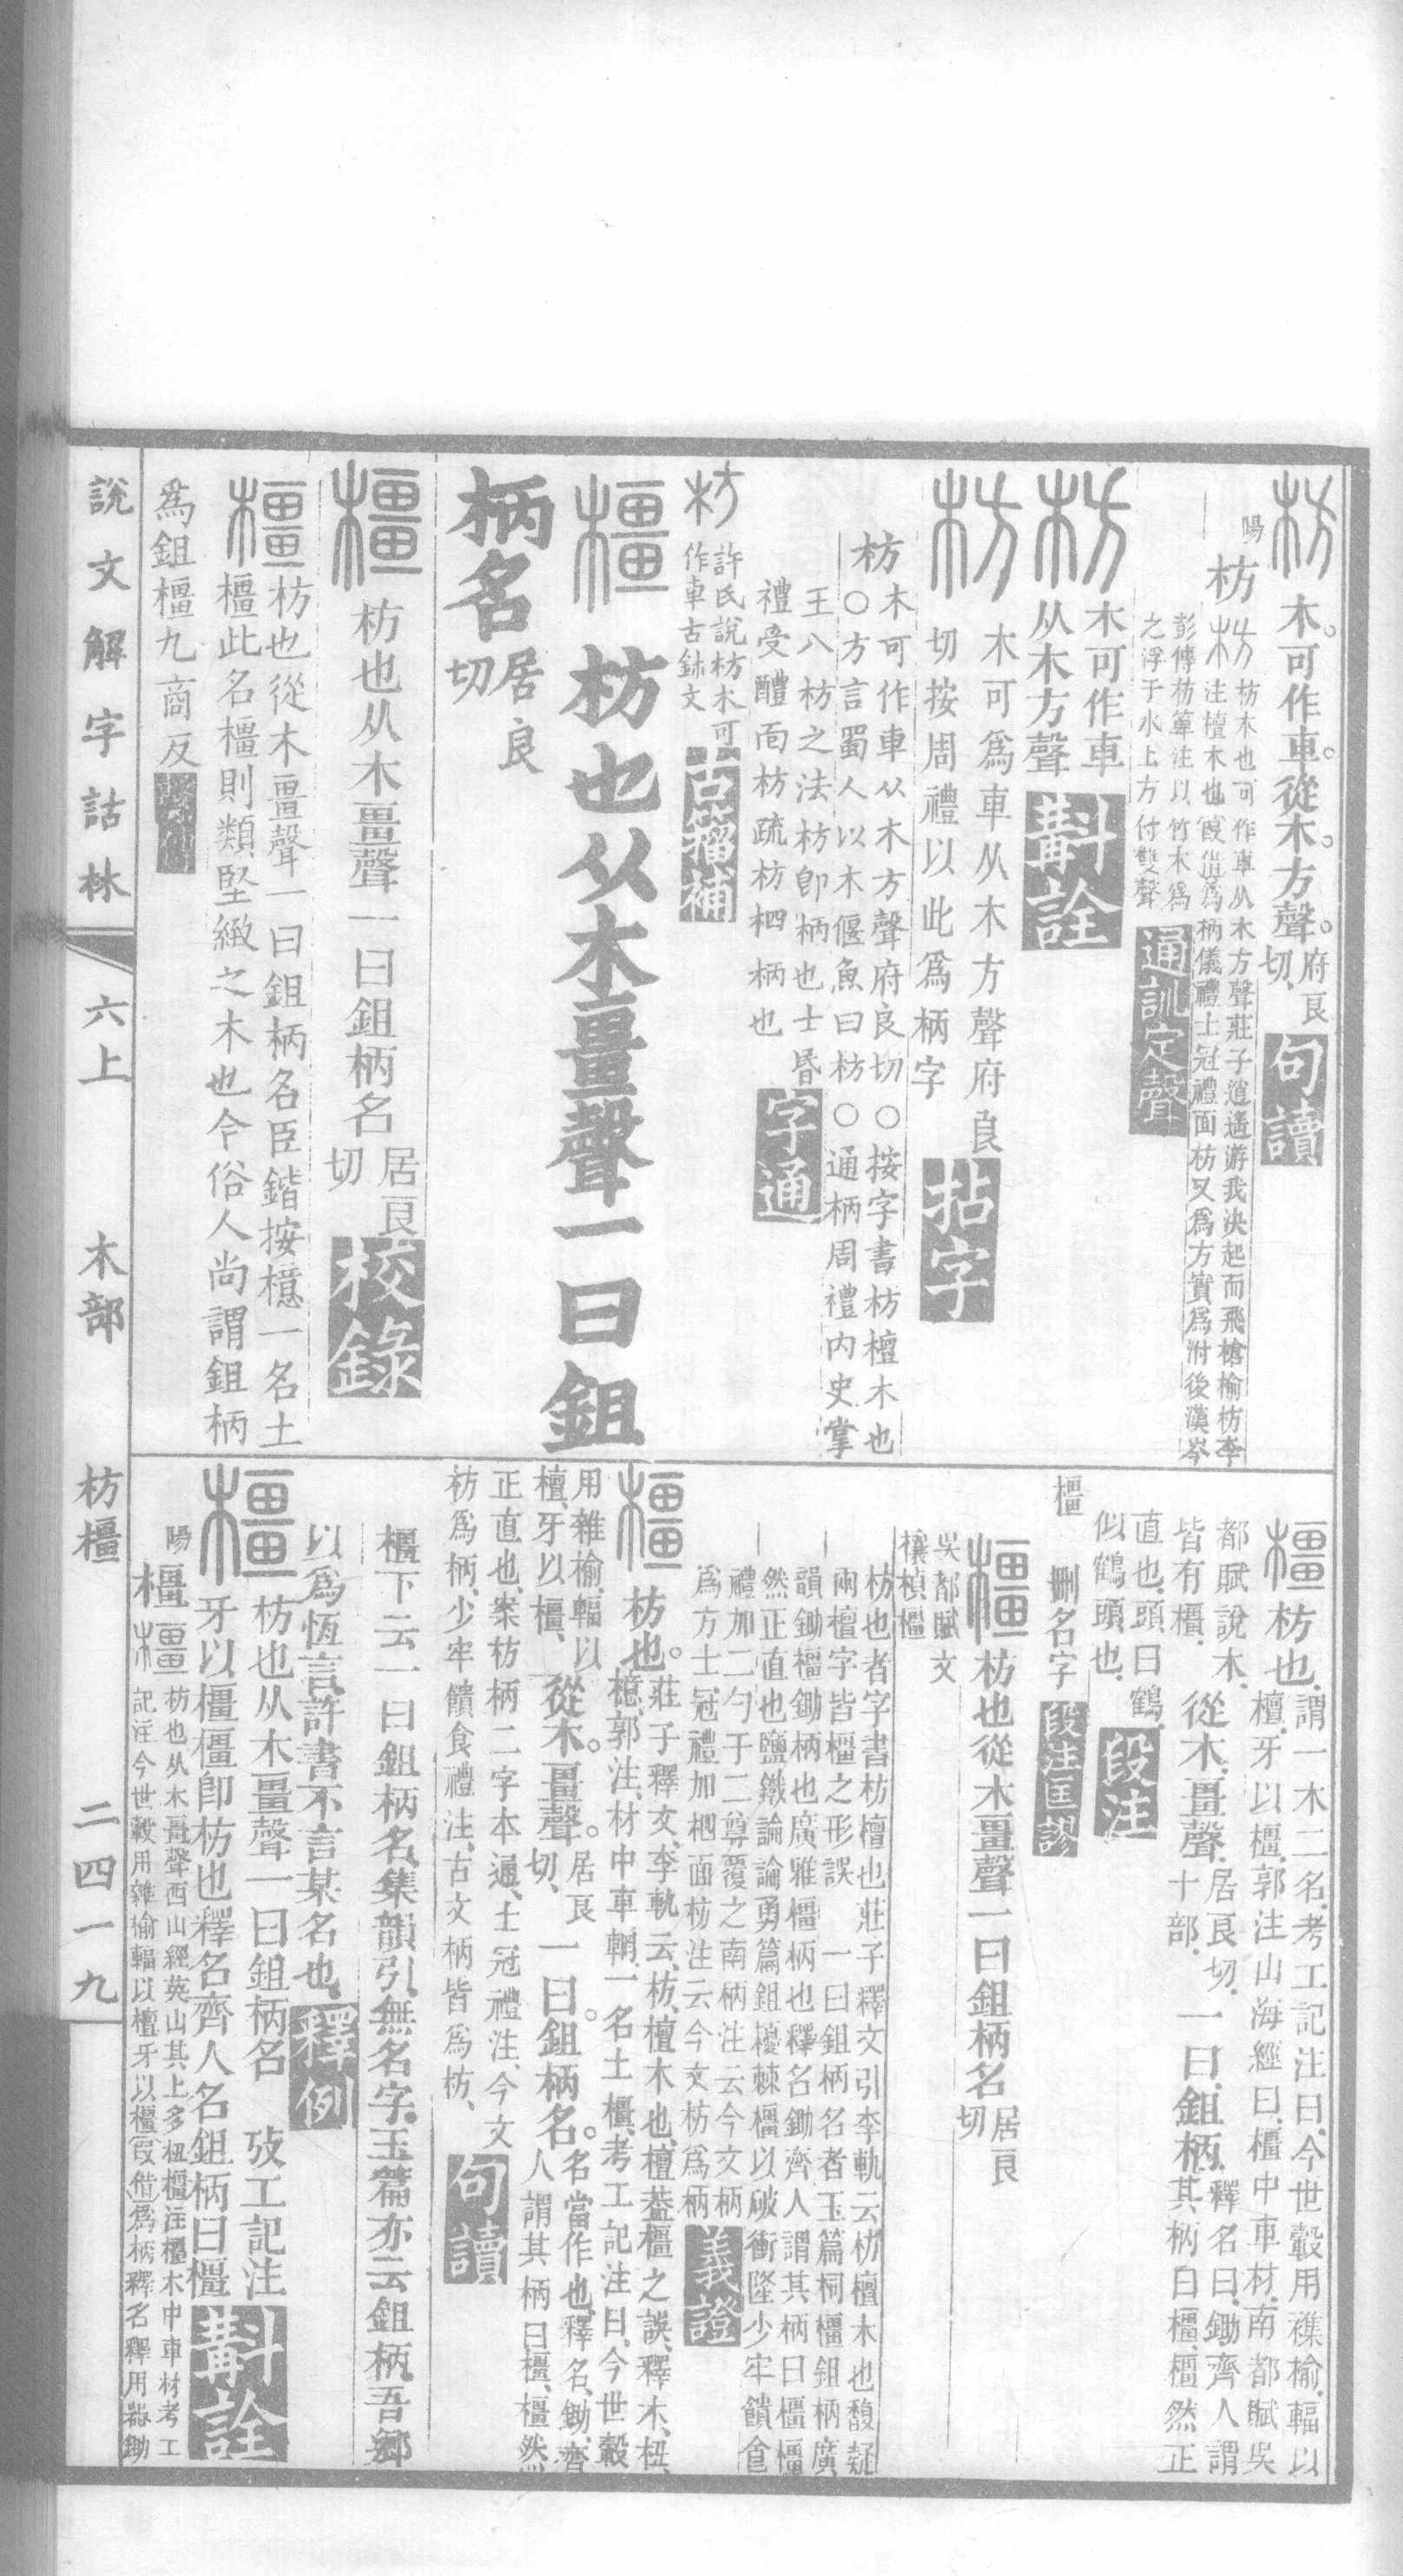 枋 木可作車從木方聲府良切 句讀
陽 枋 枋 枋木也可作車从木方聲莊子逍遙游我決起而飛槍榆枋李
注檀木也叚借爲柄儀禮士冠禮面枋又爲方實爲泭後漢岑
彭傳枋箄注以竹木爲
之浮于水上方付雙聲 通訓定聲
枋 木可作車
从木方聲 斠詮
枋 木可爲車从木方聲府良
切按周禮以此爲柄字 拈字
枋 木可作車从木方聲府良切○按字書枋檀木也
○方言蜀人以木偃魚曰枋○通柄周禮內史掌
王八枋之法枋卽柄也士昏
禮受醴面枋疏枋柶柄也 字通
枋 許氏說枋木可
作車古鉥文 古籀補
橿 枋也从木畺聲一曰鉏
柄名 居良切
橿 枋也从木畺聲一曰鉏柄名 居良切 校錄
橿 枋也從木畺聲一曰鉏柄名臣鍇按檍一名土
橿此名橿則類堅緻之木也今俗人尚謂鉏柄
爲鉏橿九商反 繫傳
橿 枋也謂一木二名考工記注曰今世轂用襍榆輻以
檀牙以橿郭注山海經曰橿中車材南都賦吳
都賦說木
皆有橿 從木畺聲 居良切十部 一曰鉏柄 釋名曰鋤齊人謂
其柄曰橿橿然正
直也頭曰鶴
似鶴頭也 段注
橿 刪名字 段注匡謬
橿 枋也從木畺聲一曰鉏柄名 居良切
吳都賦文
欀楨橿
枋也者字書枋檀也莊子釋文引李軌云枋檀木也馥疑
兩檀字皆橿之形誤 一曰鉏柄名者玉篇柌橿鉏柄廣
韻鋤橿鋤柄也廣雅橿柄也釋名鋤齊人謂其柄曰橿橿
然正直也鹽鐵論論勇篇鉏櫌棘橿以破衝隆少牢饋食
禮加二勺于二尊覆之南柄注云今文柄
爲方士冠禮加柶面枋注云今文枋爲柄 義證
橿 枋也 莊子釋文李軌云枋檀木也檀葢橿之誤釋木杻
檍郭注材中車輞一名土橿考工記注曰今世轂
用雜榆輻以
檀牙以橿 從木畺聲 居良切 一曰鉏柄名 名當作也釋名鋤齊
人謂其柄曰橿橿然
正直也案枋柄二字本通士冠禮注今文
枋爲柄少牢饋食禮注古文柄皆爲枋 句讀
橿下云一曰鉏柄名集韻引無名字玉篇亦云鉏柄吾鄉
以爲恆言許書不言某名也 釋例
橿 枋也从木畺聲一曰鉏柄名 攷工記注
牙以橿橿卽枋也釋名齊人名鉏柄曰橿 斠詮
陽 橿 橿 枋也从木畺聲西山經英山其上多杻橿注橿木中車材考工
記注今世轂用雜榆輻以檀牙以橿叚借爲柄釋名釋用器鋤
說文解字詁林 六上 木部 枋橿 二四一九